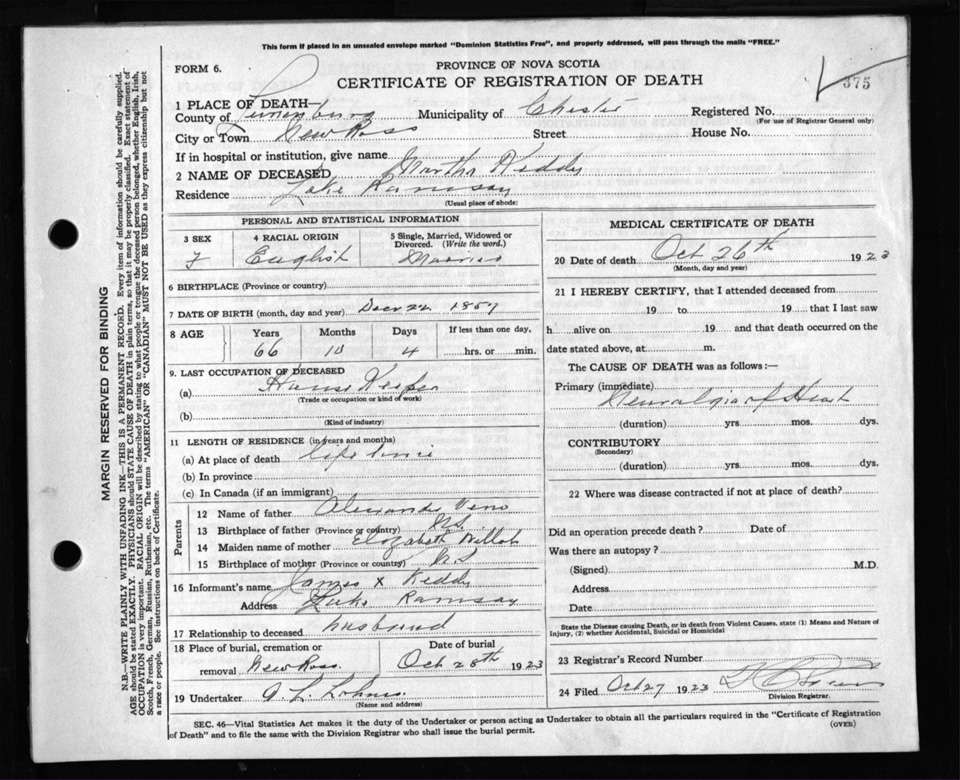 This form if placed in an unsealed envelope marked "Dominion Statistics Free", and properly addressed, will pass through the mails "FREE."
FORM 6.
PROVINCE OF NOVA SCOTIA
CERTIFICATE OF REGISTRATION OF DEATH
375
1 PLACE OF DEATH—
County of Lunenburg Municipality of Chester Registered No.
(For use of Registrar General only)
City or Town New Ross Street House No.
If in hospital or institution, give name
2 NAME OF DECEASED Martha Keddy
Residence Lake Ramsay
(Usual place of abode)
PERSONAL AND STATISTICAL INFORMATION
3 SEX 4 RACIAL ORIGIN 5 Single, Married, Widowed or Divorced. (Write the word.)
F English Married
6 BIRTHPLACE (Province or country)
7 DATE OF BIRTH (month, day and year) Decr 22 1857
8 AGE Years Months Days If less than one day,
66 10 4 hrs. or min.
9. LAST OCCUPATION OF DECEASED
(a) House Keeper
(Trade or occupation or kind of work)
(b)
(Kind of industry)
11 LENGTH OF RESIDENCE (in years and months)
(a) At place of death life time
(b) In province
(c) In Canada (if an immigrant)
Parents
12 Name of father Alexander Veno
13 Birthplace of father (Province or country) N.S.
14 Maiden name of mother Elozabeth
15 Birthplace of mother (Province or country) N.S
16 Informant's name James X Keddy
Address Lake Ramsay
17 Relationship to deceased husband
18 Place of burial, cremation or removal New Ross. Date of burial Oct 28th 1923
19 Undertaker A. L. Lohnes.
(Name and address)
MEDICAL CERTIFICATE OF DEATH
20 Date of death Oct 26th 1923
(Month, day and year)
21 I HEREBY CERTIFY, that I attended deceased from
19 to 19 that I last saw
h alive on 19 and that death occurred on the
date stated above, at m.
The CAUSE OF DEATH was as follows:—
Primary (immediate) Neuralgia of Heart
(duration) yrs mos. dys.
CONTRIBUTORY
(Secondary)
(duration) yrs. mos. dys.
22 Where was disease contracted if not at place of death?
Did an operation precede death? Date of
Was there an autopsy?
(Signed) M.D.
Address
Date
State the Disease causing Death, or in death from Violent Causes, state (1) Means and Nature of Injury, (2) whether Accidental, Suicidal or Homicidal
23 Registrar's Record Number
24 Filed Oct 27 1923
Division Registrar.
SEC. 46—Vital Statistics Act makes it the duty of the Undertaker or person acting as Undertaker to obtain all the particulars required in the "Certificate of Registration
of Death" and to file the same with the Division Registrar who shall issue the burial permit.
(OVER)
MARGIN RESERVED FOR BINDING
N.B.—WRITE PLAINLY WITH UNFADING INK—THIS IS A PERMANENT RECORD. Every item of information should be carefully supplied.
AGE should be stated EXACTLY. PHYSICIANS should STATE CAUSE OF DEATH in plain terms, so that it may be properly classified. Exact statement of
OCCUPATION is very important. RACIAL ORIGIN will be described by stating to what people or tongue the deceased person belonged, whether English, Irish,
Scotch, French, German, Russian, Ruthenian, etc. The terms "AMERICAN" OR "CANADIAN" MUST NOT BE USED as they express citizenship but not
a race or people. See instructions on back of Certificate.